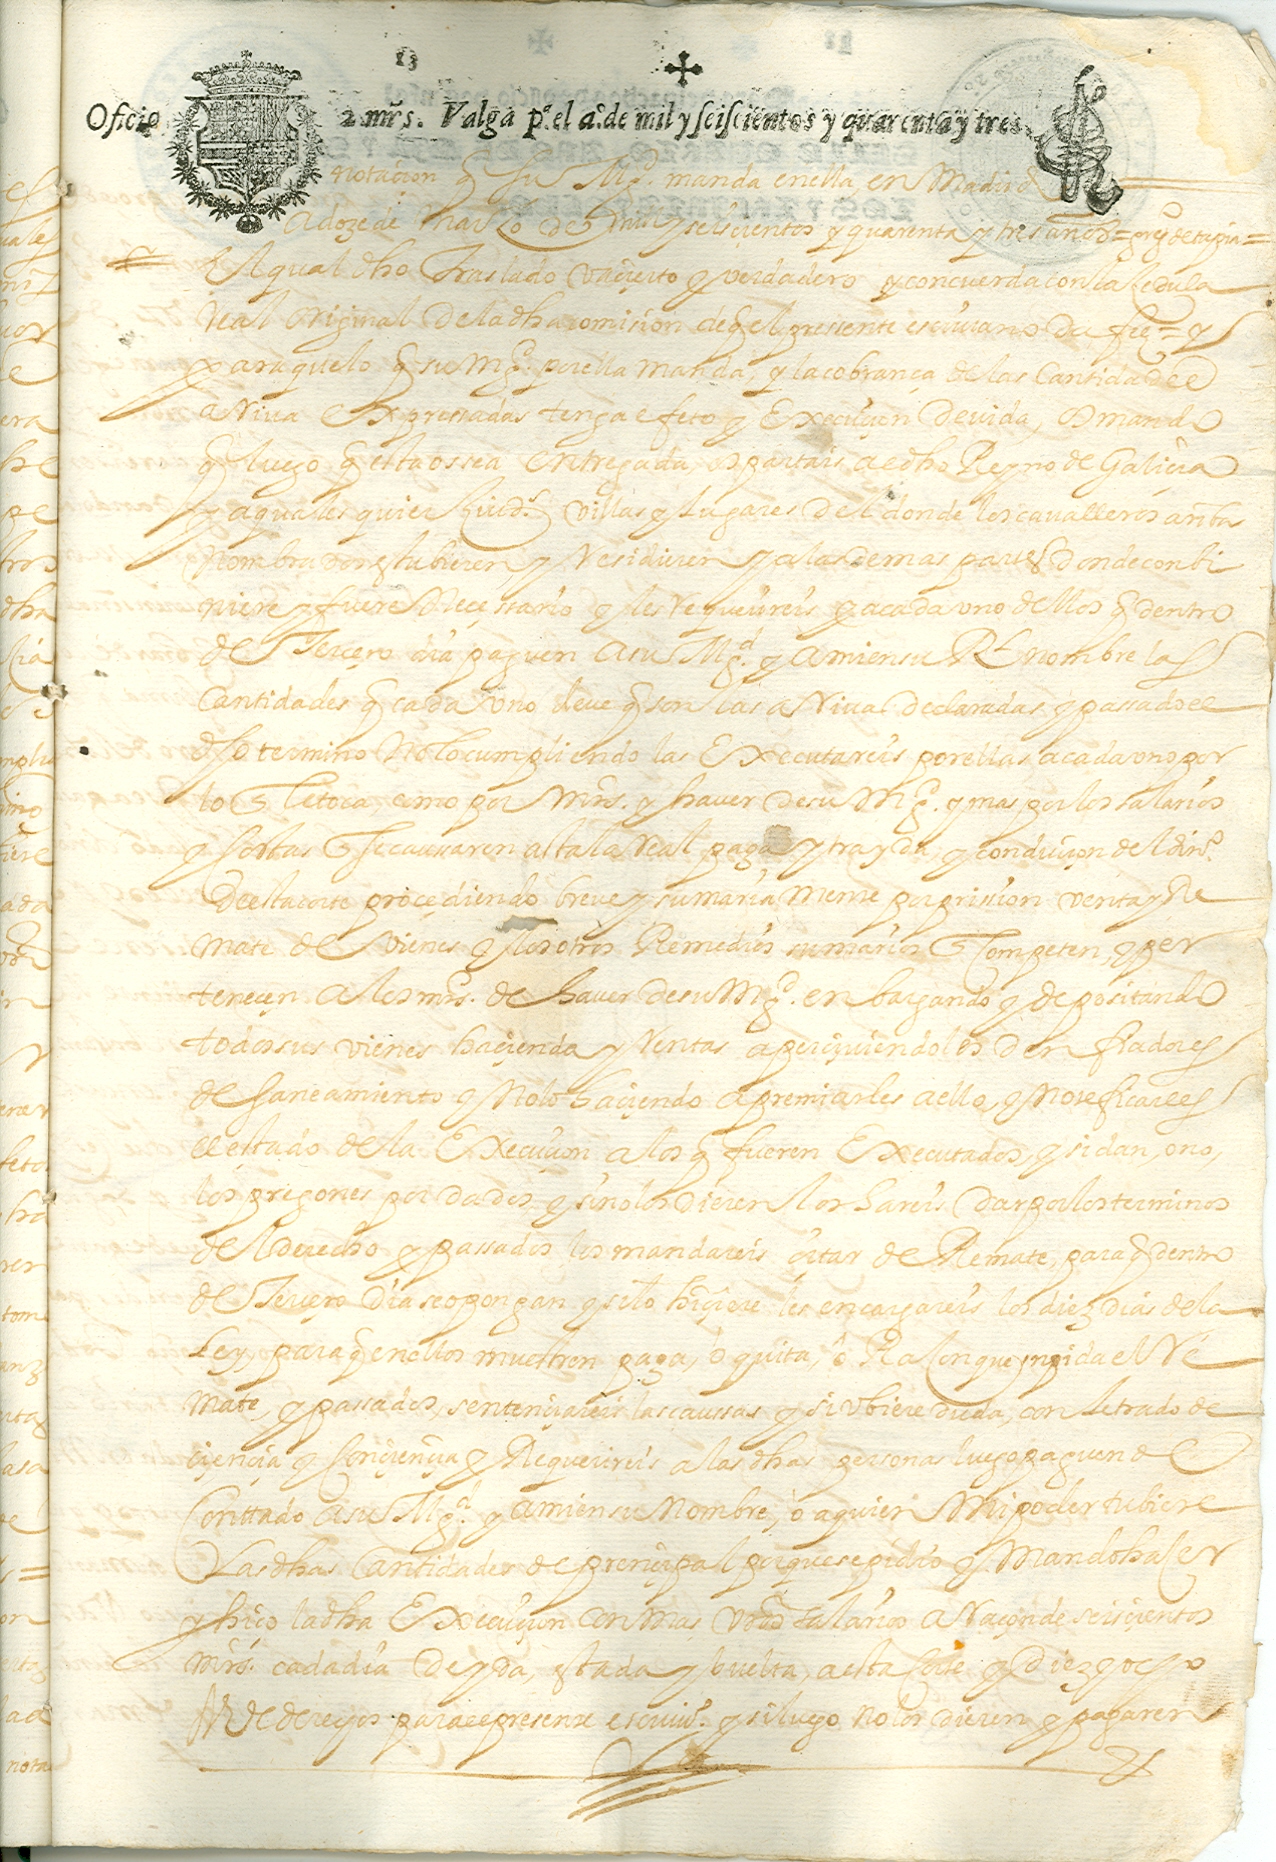 13
Oficio 2 mrs. Valga pº. el aº. de mil y seiscientos y quarenta y tres.
notaçion q̃ su Mgd. manda en ella, en Madrid
a doze de março de mill y seiscientos y quarenta y tres años = de tapia =
El qual dho Traslado va çierto y verdadero y concuerda con la Cedula
Real original de la dha comision de q̃ el pressente escrivano da fee = y
para q̃ lo q̃ su Mgd. por ella manda, y la cobrança de las Cantidades
arriva expressadas tenga efeto y Execuçion devida, os mando
q̃ luego q̃ esta os sea entregada, os partais a el dho Reyno de Galiçia
y a quales quier Ciuds. villas y lugares del donde los cavalleros arriba
nombrados estubieren, y residieren y a las demas partes donde conbi
niere y fuere neçessario y les requerireis y a cada uno dellos q̃ dentro
de Terçero dia paguen a su Mgd. y a mi en su Rl nombre las
Cantidades q̃ cada uno deve q̃ son las arriva declaradas, y passado el
dho termino no lo cumpliendo las Executareis por ellas a cada uno por
lo q̃ le toca, como por mrs. y haver de su Mgd. y mas por los salarios
y costas q̃ se caussaren asta la real paga y trayda, y conduçion del dinº.
a esta corte proçediendo breve y sumaria mente por prission venta y Re
mate de vienes y los otros Remedios sumarios q̃ Competen, y per
teneçen a los mrs. de haver de su Mgd. enbargando y depositando
todos sus vienes haçienda y Rentas aperçiviendoles den fiadores
de saneamiento y no lo haçiendo apremiarles a ello, y notificarles
el estado de la Execuçion a los q̃ fueren Executados, y si dan, o no,
los pregones por dados, y si no los dieren los hareis dar por los terminos
del derecho y passados los mandareis çitar de Remate, para q̃ dentro
de Terçero dia se opongan y si lo hiçiere les encargareis los diez dias de la
Ley, para q̃ en ellos muestren paga, o quita, o Raçon que inpida el Re
mate, y passados, sentençiareis las caussas y si ubiere duda, con Letrado de
çiençia y Conçiençia y Requerireis a las dhas personas luego paguen de
Contado a su Mgd. y a mi en su nombre, o a quien mi poder tubiere
Las dhas Cantidades de prençipal por que se pidio y Mando haçer
y hiço la dha Execuçion con mas vros salarios a Raçon de seisçientos
mrs. cada dia de yda, estada y buelta, a esta Corte y diez y ocho
Rs de derechos para el presente escrivº. y si luego no los dieren y pagaren